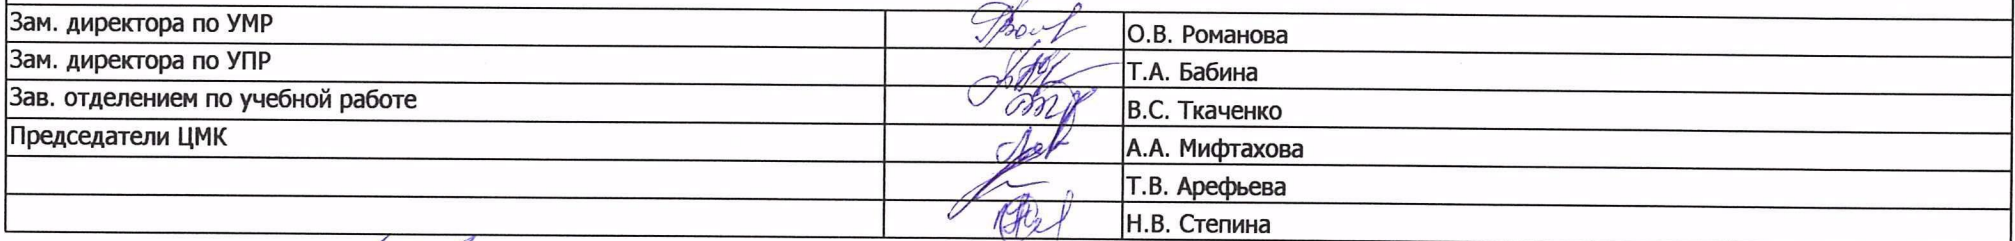 Зам. директора по УМР О.В. Романова
Зам. директора по УПР Т.А. Бабина
Зав. отделением по учебной работе В.С. Ткаченко
Председатели ЦМК А.А. Мифтахова
Т.В. Арефьева
Н.В. Степина